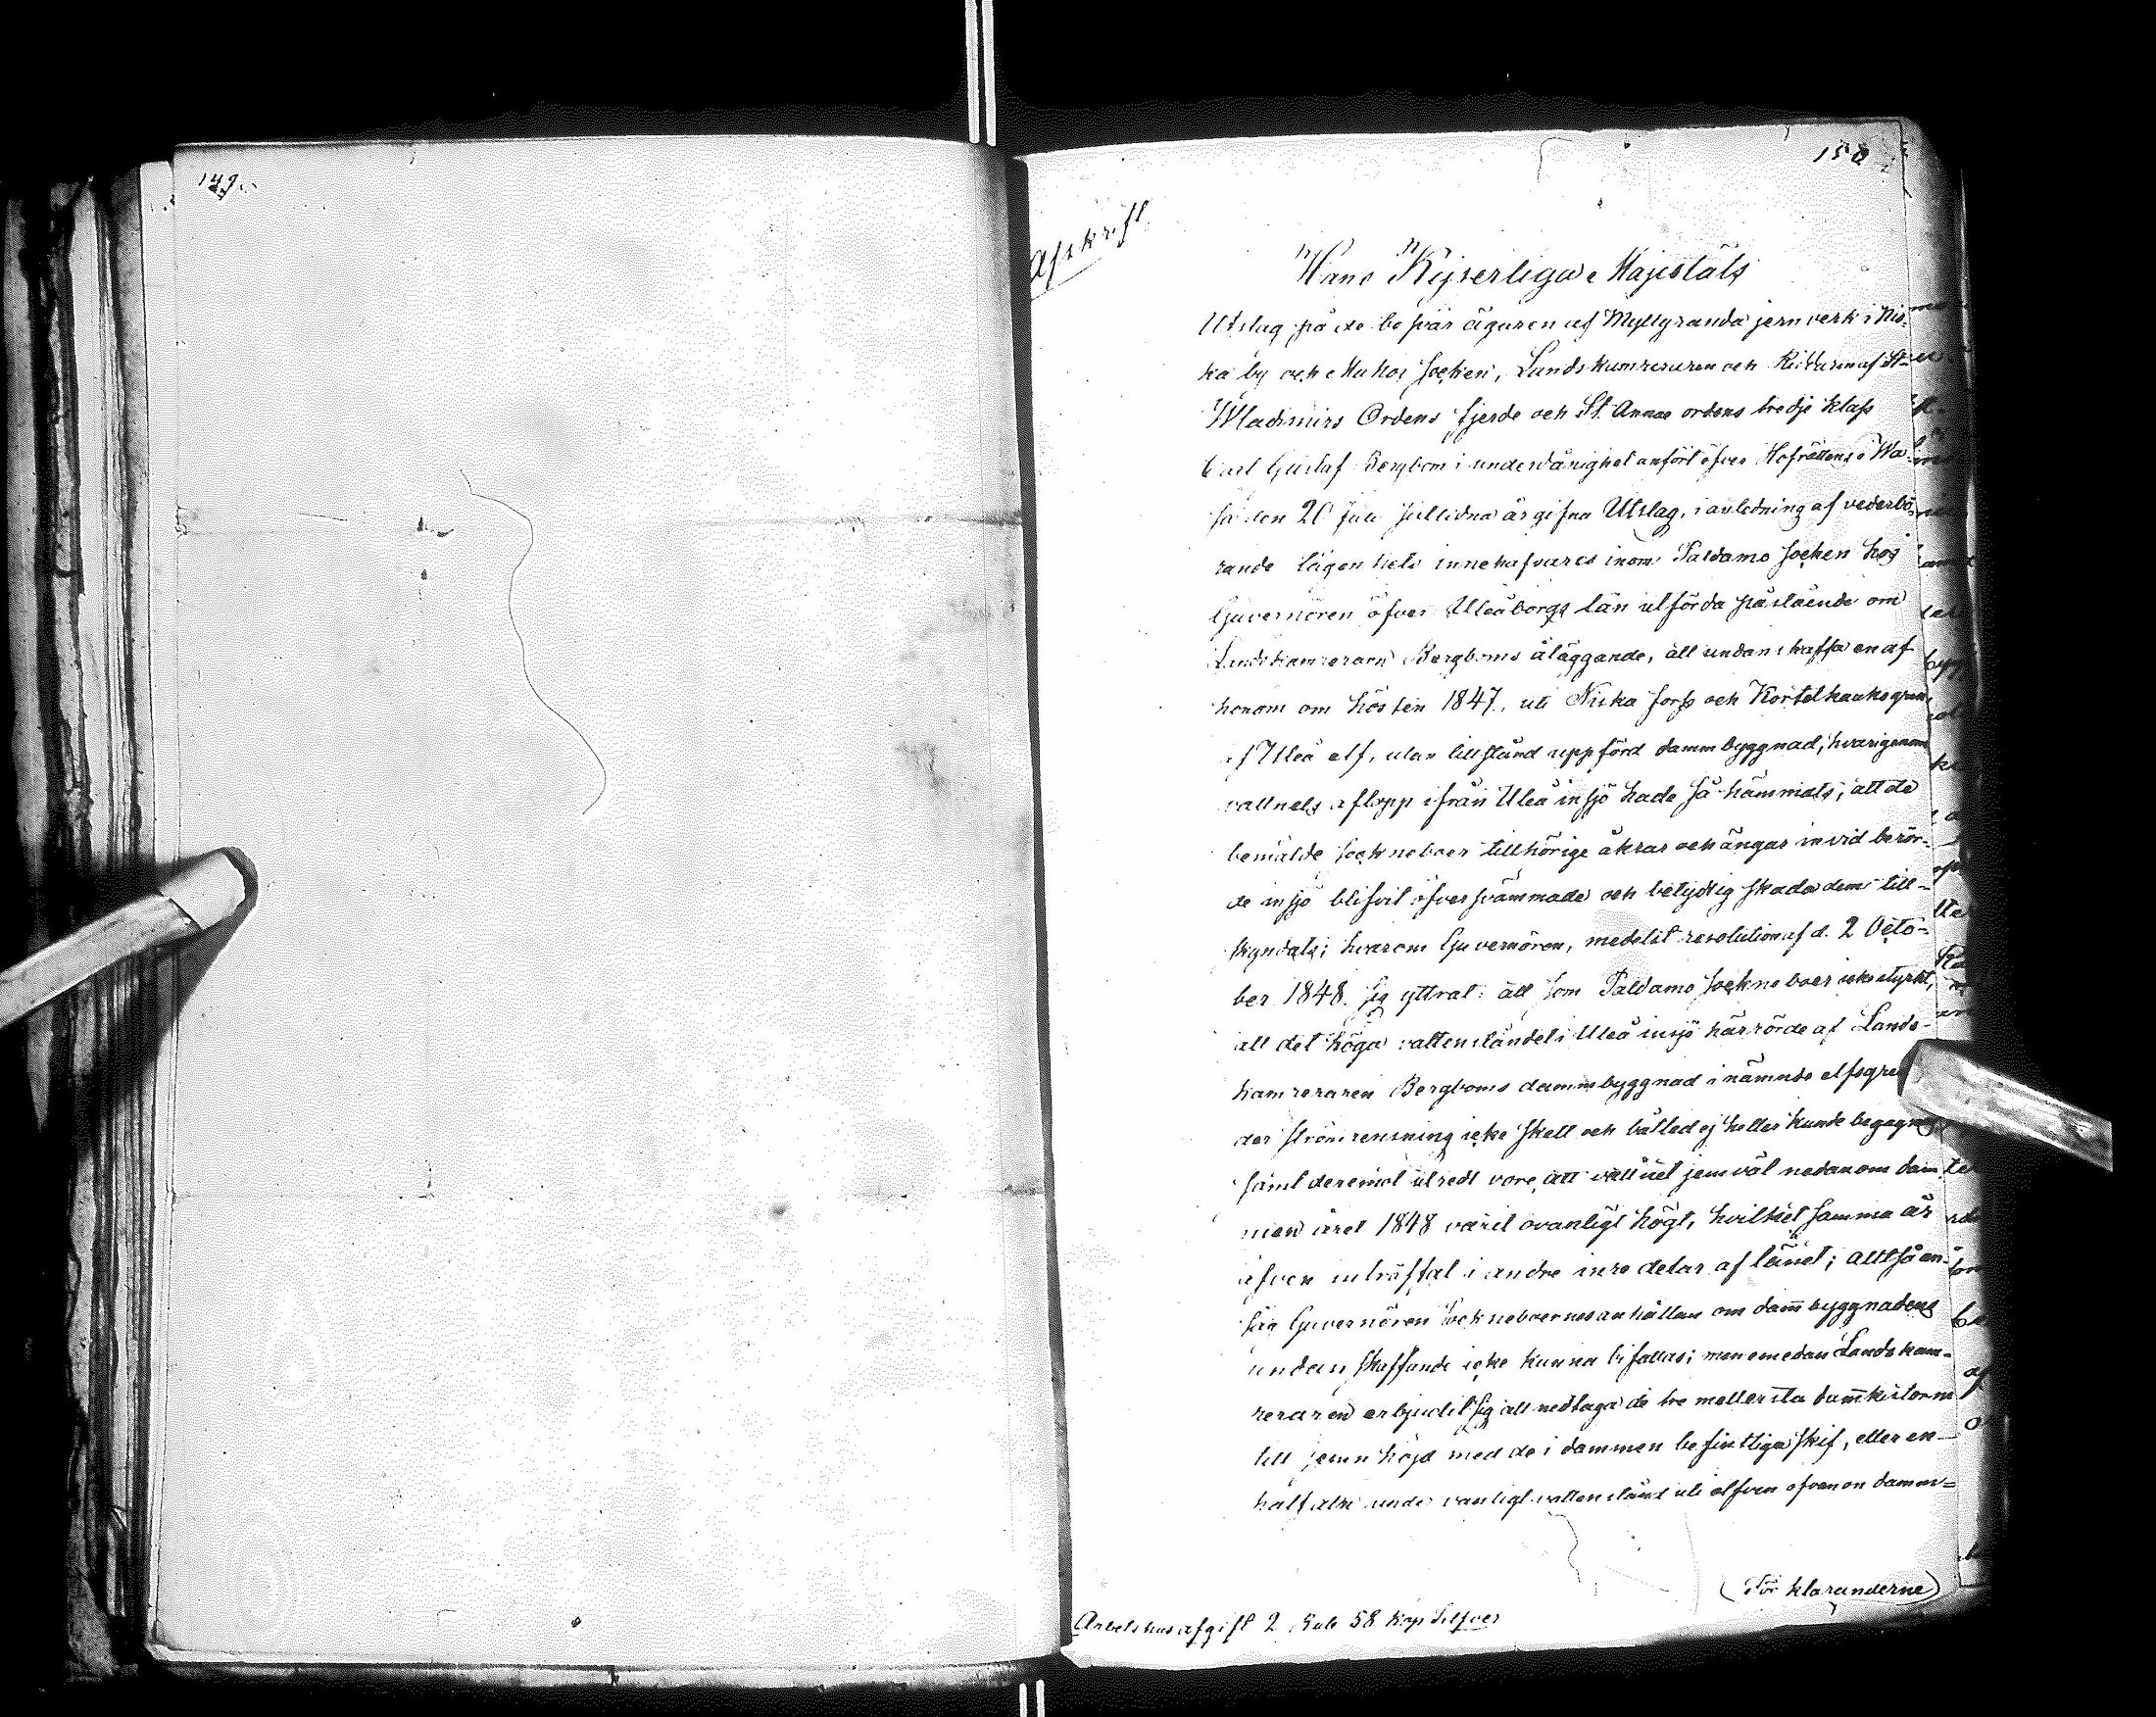 149.
150
Afskrift
Hans Kejserliga Majestäts
Utslag på de besvär ägaren af Myllyranda jernverk i Nis-
ka by och Muhos Socken, Landskamreraren och Riddaren af St.
Wladimirs Ordens fjerde och St. Annae ordens tredje klass
Carl Gustaf Bergbom i underdånighet anfört öfver Hofrättens i Wa-
sa den 20 Juli sistlidna år gifna Utslag, i anledning af vederbö-
rande lägenhets innehafvares inom Paldamo Socken hos
Guvernören öfver Uleåborgs län utförda påstående om
Landskamreraren Bergboms åläggande, att undanskaffa en af
honom om hösten 1847, uti Niska fors och Kortelhauks gren
af Uleå elf, utan tillstånd uppförd dammbyggnad, hvarigenom
vattnets aflopp ifrån Uleå insjö hade så hämmats, att de
bemälde Sockneboer tillhörige åkrar och ängar invid berör-
de insjö blifvit öfversvämmade och betydlig skada dem till-
skyndats; hvarom Guvernören, medelst resolution af d. 2 Octo-
ber 1848 sig yttrat: att som Paldamo Sockneboer icke styrkt,
att det höga vattenståndet i Uleå insjö härrörde af Lands-
kamreraren Bergboms dammbyggnad i nämnde elfsgren
der strömrensning icke skett och båtled ej heller kunde begagnas
samt deremot utredt vore, att vattnet jemväl nedanom dam-
men året 1848 varit ovanligt högt, hvilket samma år
äfven inträffat i andre inre delar af länet; alltså an-
såg Guvernören Sockneboernes anhållan om dammbyggnadens
undanskaffande icke kunna bifallas; men emedan Landskam-
reraren erbjudit sig att nedtaga de tre mellersta dammkistorne
till jemn höjd med de i dammen befintliga skif, eller en
half aln under vanligt vattenstånd uti elfven ofvanom damm-
(För klaranderne)
Arbetshusafgift 2 Rub 58 kop Silfver